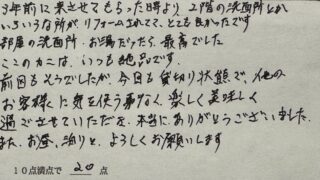 3年前に来させてもらった時より、2階の洗面所とか
いろいろな所が、リフォームされてて、とても良かったです
部屋の洗面所・お湯だったら、最高でした
ここのカニは、いつも絶品です。
前回もそうでしたが、今回も貸切り状態で、他の
お客様に気を使う事なく、楽しく美味しく
過ごさせていただき、本当にありがとうございました。
また、お昼、泊りと、よろしくお願いします
10点満点で 20 点